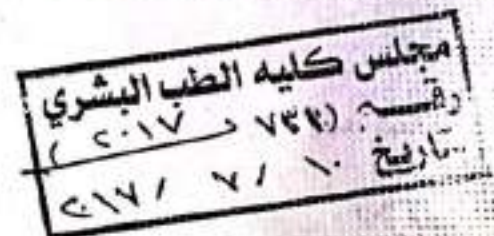 مجلس كليه الطب البشري
رقم (٧٣٣ د ٢٠١٧)
تاريخ ١٠ / ٧ / ٢٠١٧